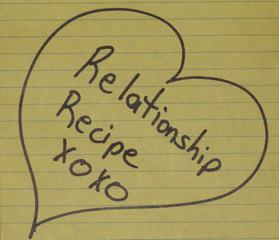 Relationship
Recipe
XOXO